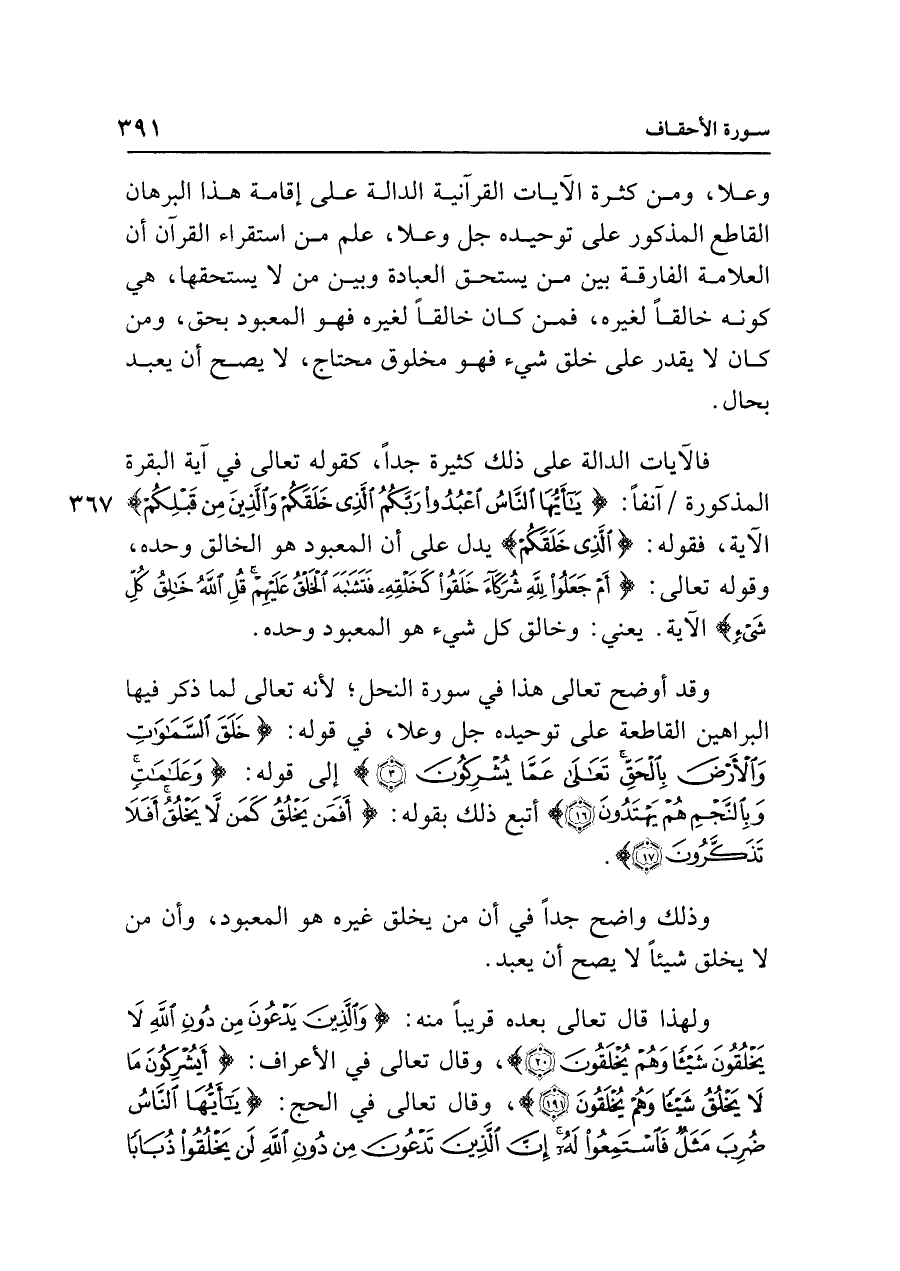 سورة الأحقاف ٣٩١
وعلا، ومن كثرة الآيات القرآنية الدالة على إقامة هذا البرهان
القاطع المذكور على توحيده جل وعلا، علم من استقراء القرآن أن
العلامة الفارقة بين من يستحق العبادة وبين من لا يستحقها، هي
كونه خالقاً لغيره، فمن كان خالقاً لغيره فهو المعبود بحق، ومن
كان لا يقدر على خلق شيء فهو مخلوق محتاج، لا يصح أن يعبد
بحال.
فالآيات الدالة على ذلك كثيرة جداً، كقوله تعالى في آية البقرة
المذكورة / آنفاً: ﴿ يَٰٓأَيُّهَا ٱلنَّاسُ ٱعۡبُدُواْ رَبَّكُمُ ٱلَّذِي خَلَقَكُمۡ وَٱلَّذِينَ مِن قَبۡلِكُمۡ﴾ ٣٦٧
الآية، فقوله: ﴿ٱلَّذِي خَلَقَكُمۡ﴾ يدل على أن المعبود هو الخالق وحده،
وقوله تعالى: ﴿ أَمۡ جَعَلُواْ لِلَّهِ شُرَكَآءَ خَلَقُواْ كَخَلۡقِهِۦ فَتَشَٰبَهَ ٱلۡخَلۡقُ عَلَيۡهِمۡۚ قُلِ ٱللَّهُ خَٰلِقُ كُلِّ
شَيۡءٖ﴾ الآية. يعني: وخالق كل شيء هو المعبود وحده.
وقد أوضح تعالى هذا في سورة النحل؛ لأنه تعالى لما ذكر فيها
البراهين القاطعة على توحيده جل وعلا، في قوله: ﴿ خَلَقَ ٱلسَّمَٰوَٰتِ
وَٱلۡأَرۡضَ بِٱلۡحَقِّۚ تَعَٰلَىٰ عَمَّا يُشۡرِكُونَ ٣﴾ إلى قوله: ﴿ وَعَلَٰمَٰتٖۚ
وَبِٱلنَّجۡمِ هُمۡ يَهۡتَدُونَ ١٦﴾ أتبع ذلك بقوله: ﴿ أَفَمَن يَخۡلُقُ كَمَن لَّا يَخۡلُقُۚ أَفَلَا
تَذَكَّرُونَ ١٧﴾.
وذلك واضح جداً في أن من يخلق غيره هو المعبود، وأن من
لا يخلق شيئاً لا يصح أن يعبد.
ولهذا قال تعالى بعده قريباً منه: ﴿ وَٱلَّذِينَ يَدۡعُونَ مِن دُونِ ٱللَّهِ لَا
يَخۡلُقُونَ شَيۡـٔٗا وَهُمۡ يُخۡلَقُونَ ٢٠﴾، وقال تعالى في الأعراف: ﴿ أَيُشۡرِكُونَ مَا
لَا يَخۡلُقُ شَيۡـٔٗا وَهُمۡ يُخۡلَقُونَ ١٩١﴾، وقال تعالى في الحج: ﴿يَٰٓأَيُّهَا ٱلنَّاسُ
ضُرِبَ مَثَلٞ فَٱسۡتَمِعُواْ لَهُۥٓۚ إِنَّ ٱلَّذِينَ تَدۡعُونَ مِن دُونِ ٱللَّهِ لَن يَخۡلُقُواْ ذُبَابٗا